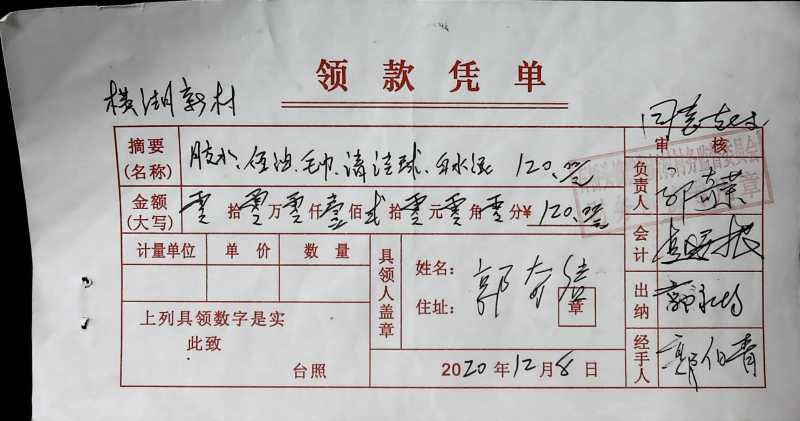 领款凭单
横湖新村
同意支出
摘要(名称) 胶水、毛巾、清洁球、 120.00元
审核
金额(大写) 零拾零万零仟壹佰贰拾零元零角零分¥120.00元
负责人
计量单位 单价 数量
具领人盖章 姓名:
住址: 章
会计
出纳
上列具领数字是实
此致
台照
2020年12月8日
经手人 郭伯青